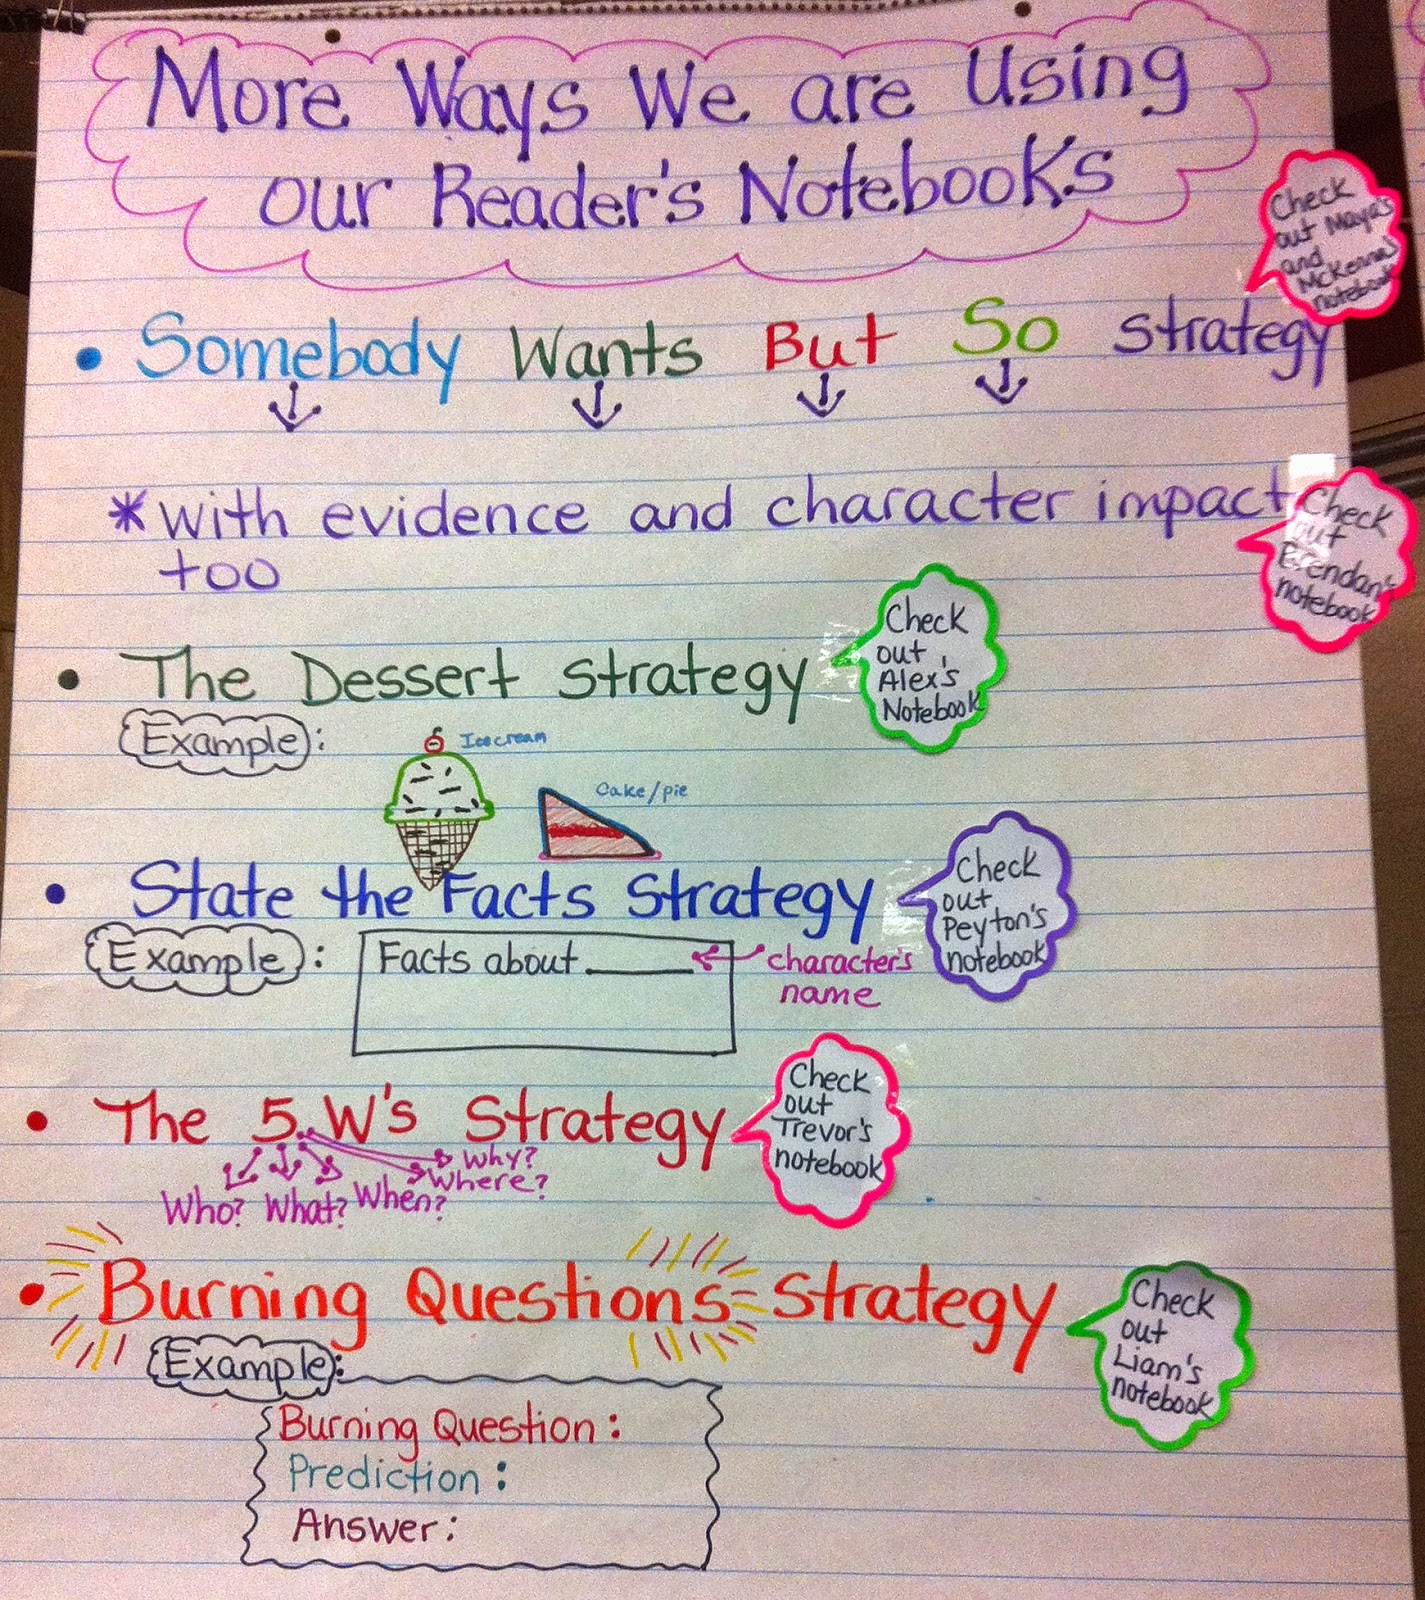 More Ways We are Using
our Reader's Notebooks
Check
out Maya's
and
McKenna's
notebook
• Somebody Wants But So strategy
*with evidence and character impact
too
Check
out
Brendan's
notebook
• The Dessert Strategy
Check
out
Alex's
Notebook
Example:
Icecream
Cake/pie
• State the Facts Strategy
Check
out
Peyton's
notebook
Example: Facts about ______
character's
name
• The 5 W's Strategy
Check
out
Trevor's
notebook
Why?
Where?
Who? What? When?
• Burning Questions Strategy
Check
out
Liam's
notebook
Example:
Burning Question:
Prediction:
Answer: